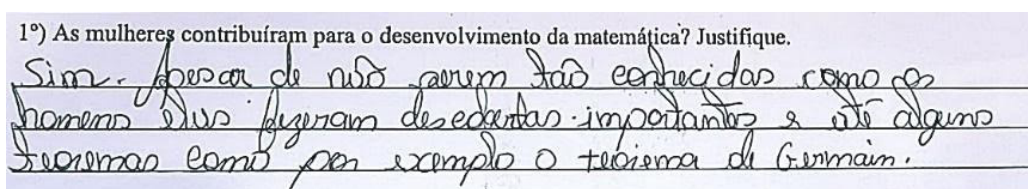 1º) As mulheres contribuíram para o desenvolvimento da matemática? Justifique.
Sim. Apesar de não serem tão conhecidas como os
homens elus fizeram descobertas importantes e até alguns
teoremas como por exemplo o teorema de Germain.